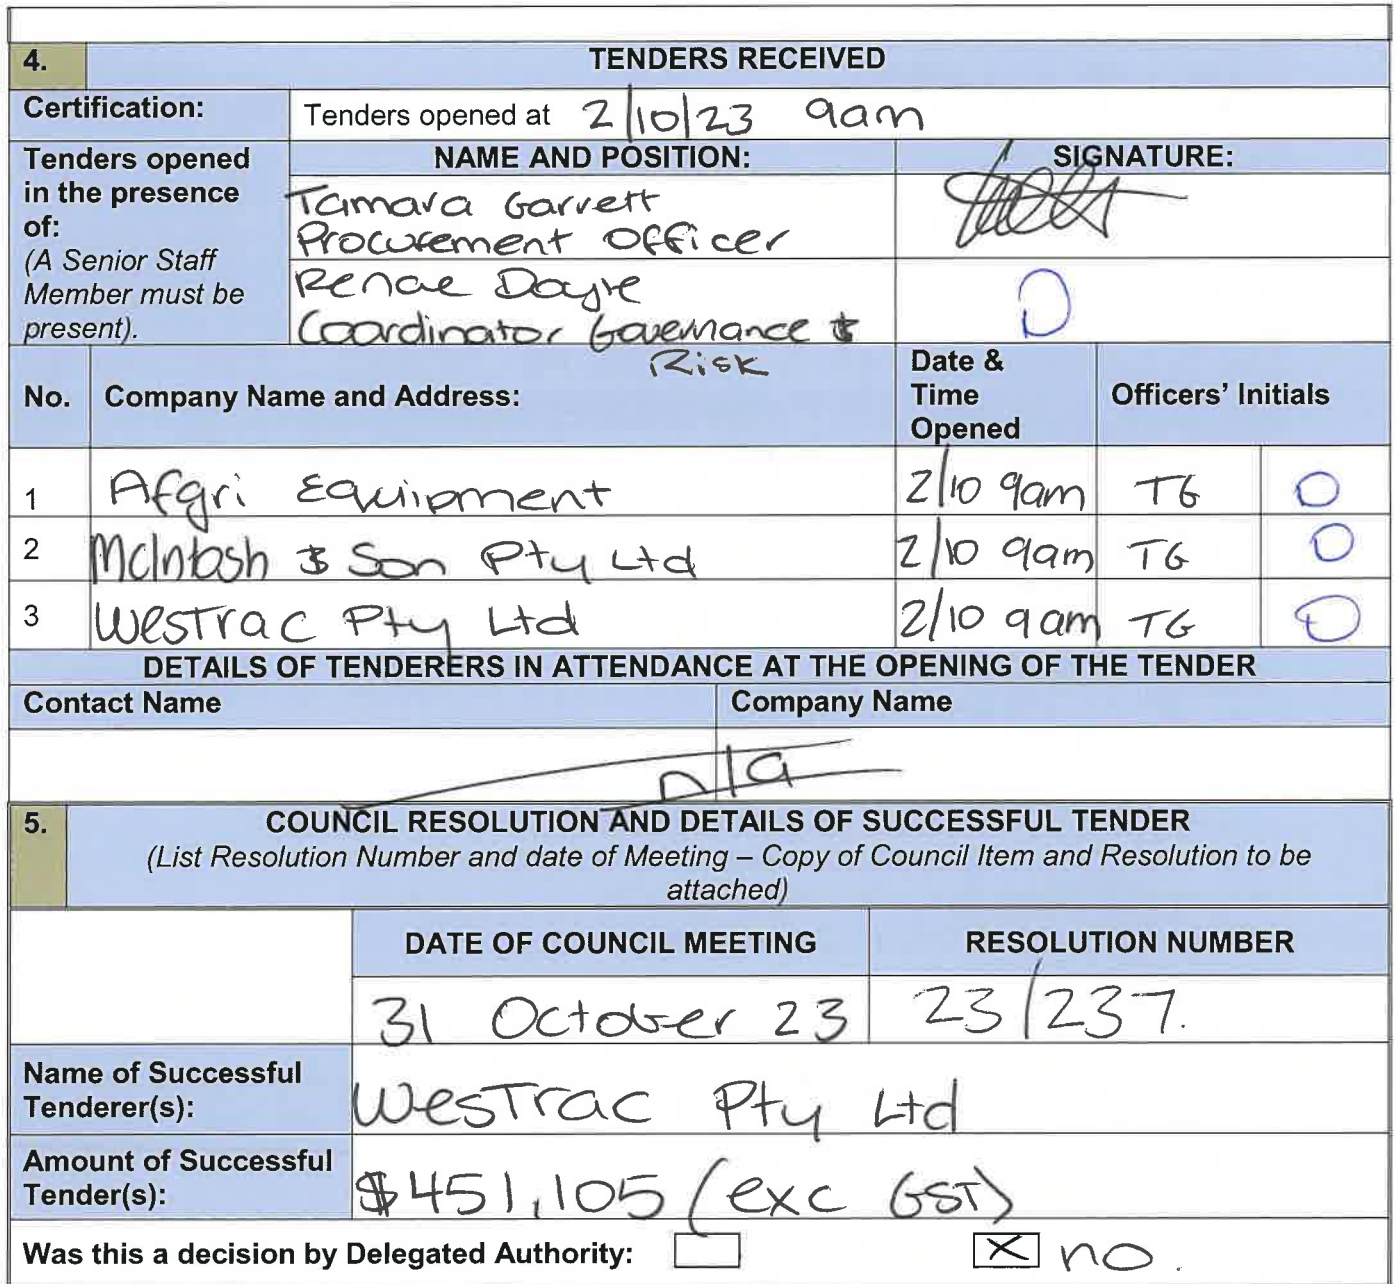 4. TENDERS RECEIVED
Certification: Tenders opened at 2/10/23 9am
Tenders opened in the presence of: (A Senior Staff Member must be present).
NAME AND POSITION: SIGNATURE:
Tamara Garrett
Procurement Officer
Renae Doyle
Coordinator Governance &
Risk
No. Company Name and Address: Date & Time Opened Officers' Initials
1 Afgri Equipment 2/10 9am TG
2 McIntosh & Son Pty Ltd 2/10 9am TG
3 WesTrac Pty Ltd 2/10 9am TG
DETAILS OF TENDERERS IN ATTENDANCE AT THE OPENING OF THE TENDER
Contact Name Company Name
n/a
5. COUNCIL RESOLUTION AND DETAILS OF SUCCESSFUL TENDER
(List Resolution Number and date of Meeting – Copy of Council Item and Resolution to be
attached)
DATE OF COUNCIL MEETING RESOLUTION NUMBER
31 October 23 23/237.
Name of Successful Tenderer(s): WesTrac Pty Ltd
Amount of Successful Tender(s): $451,105 (exc GST)
Was this a decision by Delegated Authority: X no.